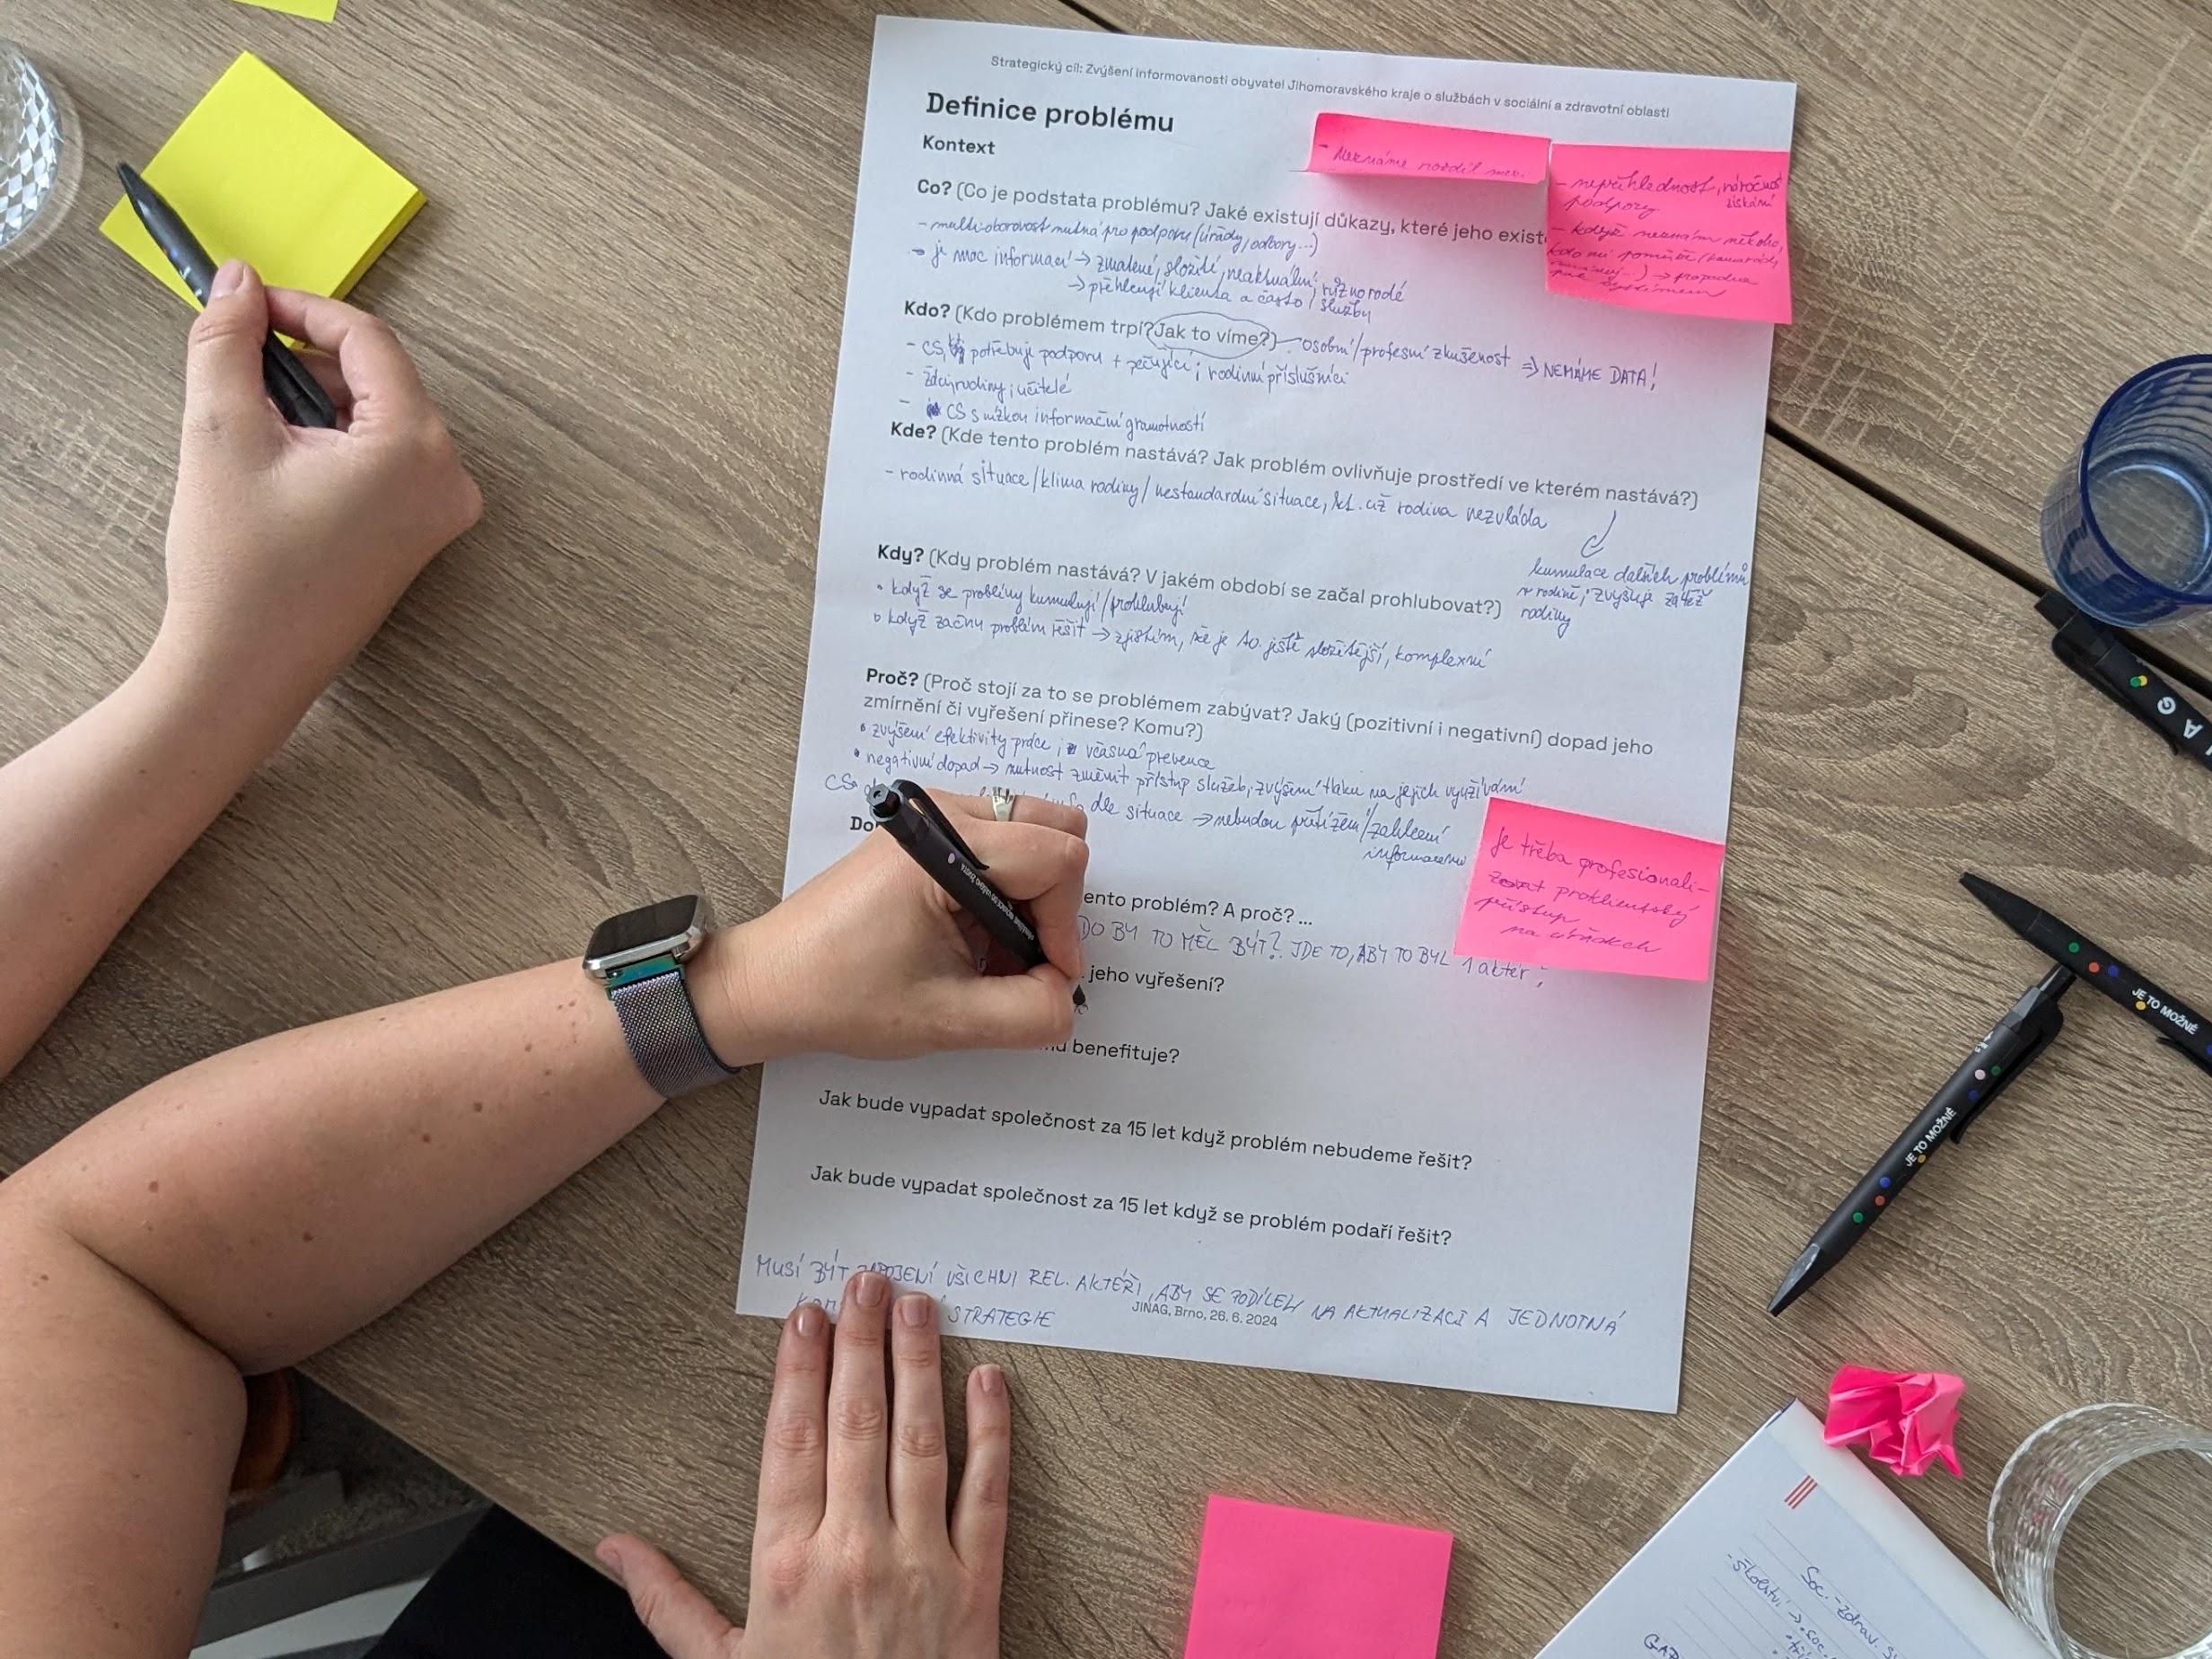 Strategický cíl: Zvýšení informovanosti obyvatel Jihomoravského kraje o službách v sociální a zdravotní oblasti
Definice problému
Kontext
- Neznáme rozdíl mez.
- nepřehlednost, náročnost
získání
podpory
- když neznám někoho,
kdo mi pomůže (kamarád,
...) → propadnu
systémem
Co? (Co je podstata problému? Jaké existují důkazy, které jeho exist
- multi-oborovost nutná pro podporu (úřady, odbory...)
→ je moc informací → zmatené, složité, neaktuální, různorodé
→ přehlcují klienta a často i služby
Kdo? (Kdo problémem trpí? Jak to víme?) - osobní/profesní zkušenost ⇒ NEMÁME DATA!
- CS, potřebují podporu + pečující, rodinní příslušníci
- žáci, rodiny, učitelé
- CS s nízkou informační gramotností
Kde? (Kde tento problém nastává? Jak problém ovlivňuje prostředí ve kterém nastává?)
- rodinná situace/klima rodiny/nestandardní situace, kt. už rodina nezvládá
kumulace dalších problémů
v rodině, zvyšuje zátěž
rodiny
Kdy? (Kdy problém nastává? V jakém období se začal prohlubovat?)
• když se problémy kumulují/prohlubují
• když začnu problém řešit → zjistím, že je to ještě složitější, komplexní
Proč? (Proč stojí za to se problémem zabývat? Jaký (pozitivní i negativní) dopad jeho
zmírnění či vyřešení přinese? Komu?)
• zvýšení efektivity práce, včasná prevence
• negativní dopad → nutnost změnit přístup služeb, zvýšení tlaku na jejich využívání
CS dle situace → nebudou přetížení/zahlcení
informacemi
Do
Je třeba profesionali-
zovat proklientský
přístup
na úřadech
ento problém? A proč? ...
DO BY TO MĚL BÝT? JDE TO, ABY TO BYL 1 aktér,
jeho vyřešení?
benefituje?
Jak bude vypadat společnost za 15 let když problém nebudeme řešit?
Jak bude vypadat společnost za 15 let když se problém podaří řešit?
MUSÍ BÝT ZAPOJENÍ VŠICHNI REL. AKTÉŘI, ABY SE PODÍLELI NA AKTUALIZACI A JEDNOTNÁ
STRATEGIE
JINAG, Brno, 26. 6. 2024
JE TO MOŽNÉ
JE TO MOŽNÉ
Soc.-zdrav.
- školství → soc.